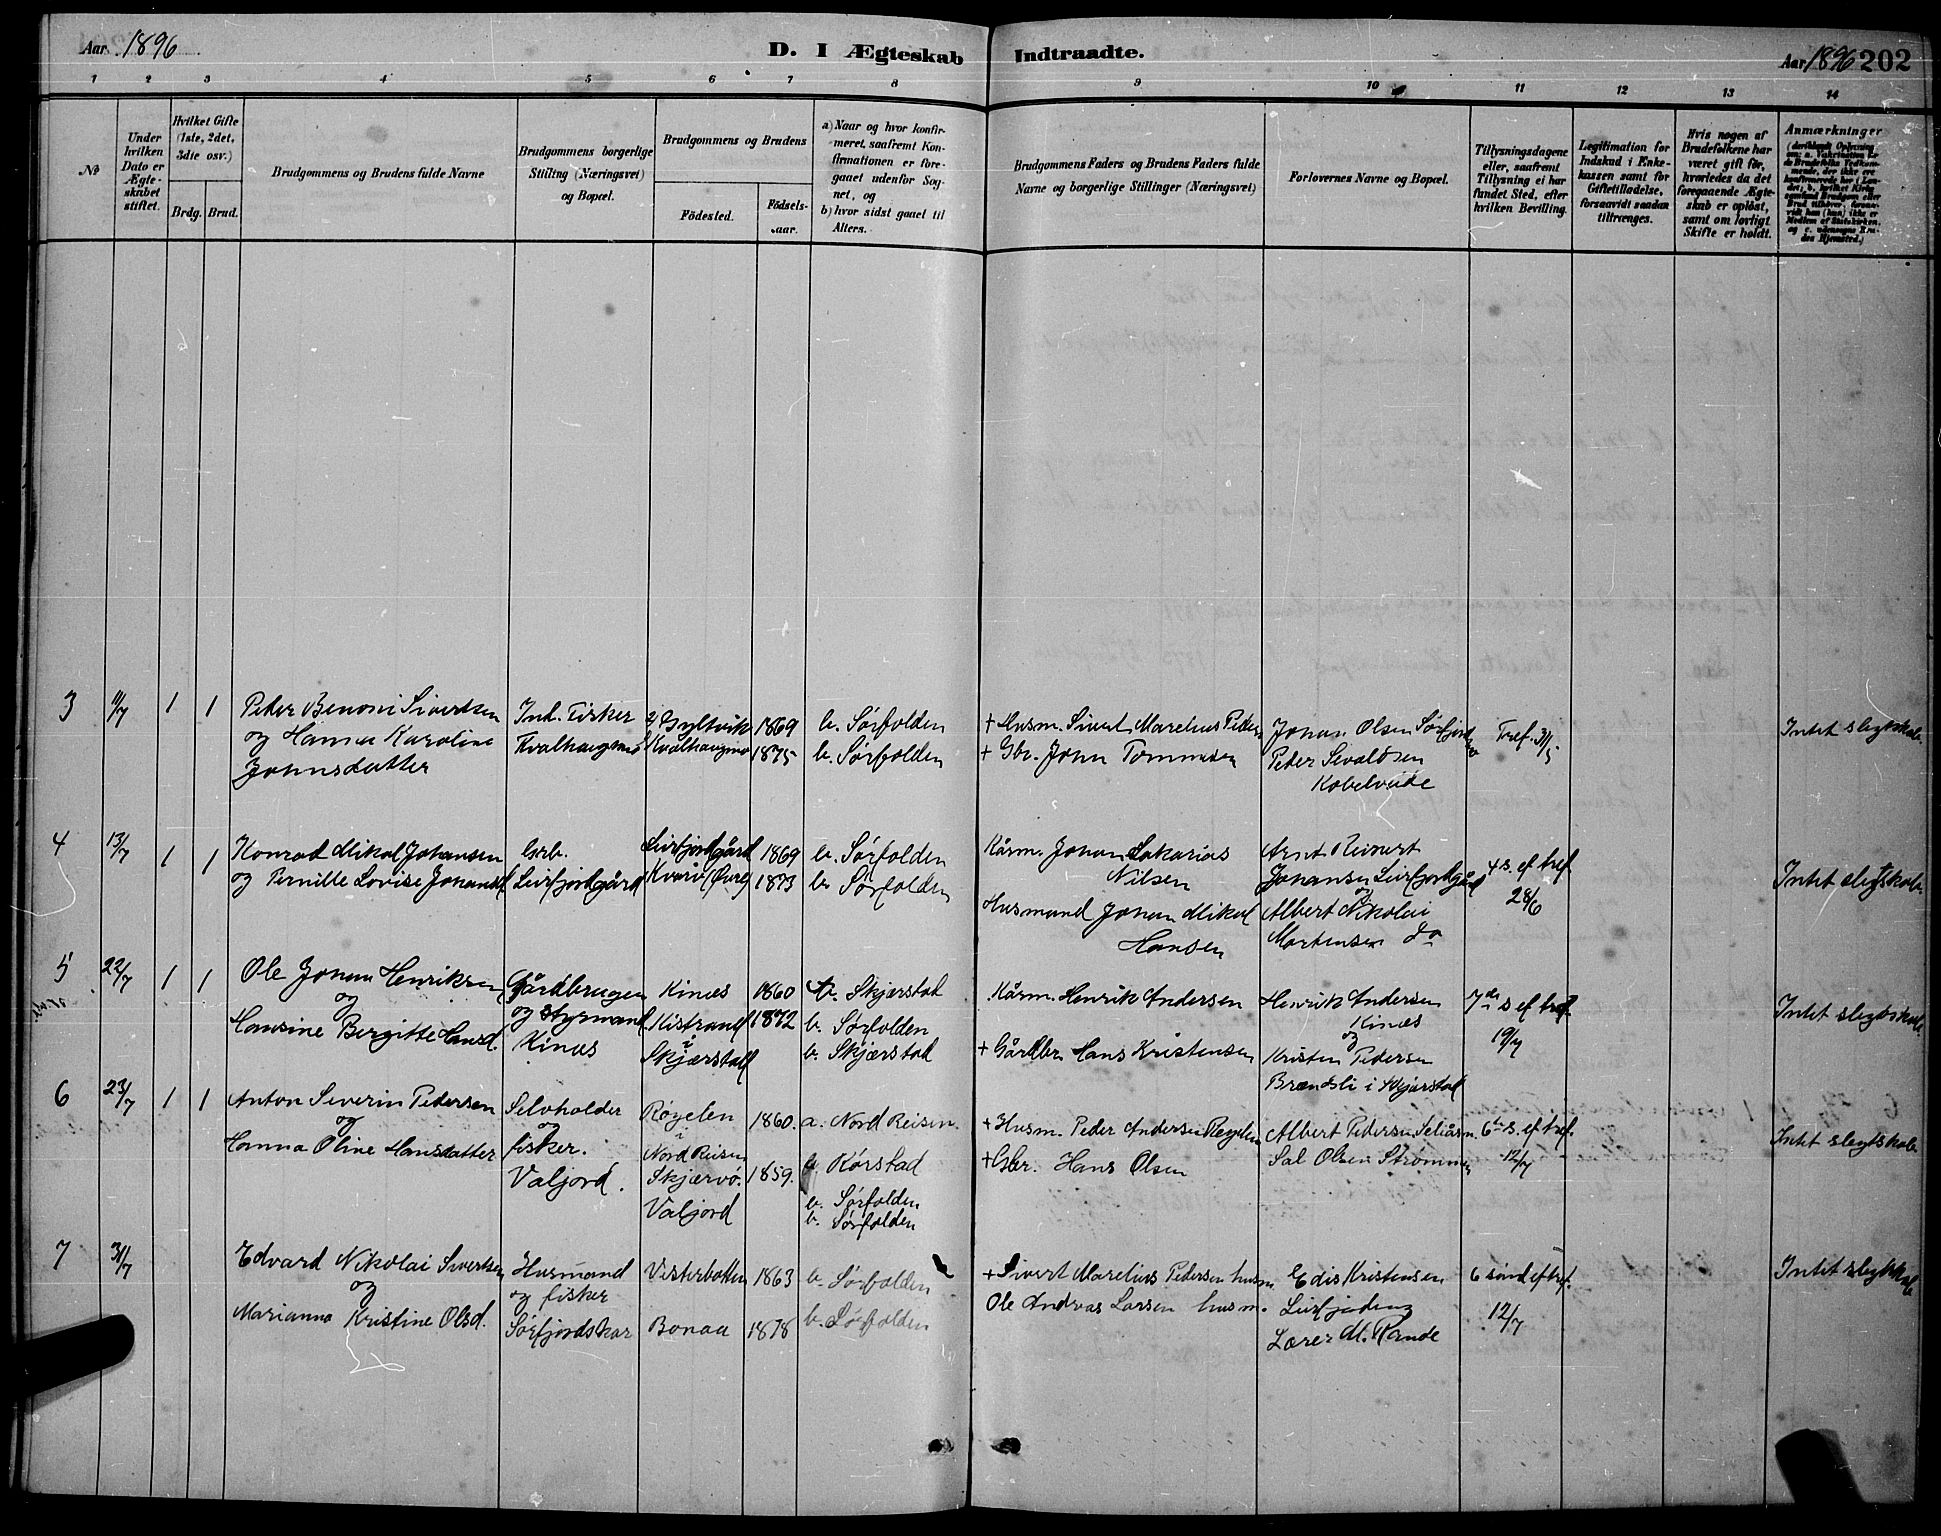 Aar 1896
D. I Ægteskab Indtraadte.
Aar 1896 202
1 2 3 4 5 6 7 8 9 10 11 12 13 14
No
Under
hvilken
Dato er
Ægte-
skabet
stiftet.
Hvilket Gifte
(1ste, 2det,
3die osv.)
Brdg. Brud.
Brudgommens og Brudens fulde Navne
Brudgommens borgerlige
Stilling (Næringsvei)
og Bopæl.
Brudgommens og Brudens
Födested.
Födsels-
aar.
a) Naar og hvor konfir-
meret, saafremt Kon-
firmationen er fore-
gaaet udenfor Sog-
net, og
b) hvor sidst gaaet til
Alters.
Brudgommens Faders og Brudens Faders fulde
Navne og borgerlige Stillinger (Næringsvei)
Forlovernes Navne og Bopæl.
Tillysningsdagene
eller, saafremt
Tillysning ei har
fundet Sted, efter
hvilken Bevilling.
Legitimation for
Indskud i Enke-
kassen samt for
Giftetilladelse,
forsaavidt saadan
tiltrænges.
Hvis nogen af
Brudefolkene har
været gift før,
hvorledes da det
foregaaende Ægte-
skab er opløst,
samt om lovligt
Skifte er holdt.
Anmærkninger
3 11/7 1 1
Peder Benoni Sivertsen
og Hanna Karoline
Johnsdatter
Ind. Fisker
Kvalhaugmo
Gyltvik
Kvalhaugmo
1869
1875
b. Sørfolden
b. Sørfolden
+ Husm. Sivert Marelius Peders
+ Gbr. John Tommesen
Johan Olsen Sørfjorden
Peder Sivaldsen
Kobelveide
Tref. 31/5
Intet slegtskab.
4 13/7 1 1
Konrad Mikal Johansen
og Pernille Lovise Johansd
Grb.
Leirfjordgård
Leirfjordgård
Kvarv (Øvre)
1869
1873
b. Sørfolden
b. Sørfolden
Kårm. Johan Sakarias
Nilsen
Husmand Johan Mikal
Hansen
Arnt Reinert
Johansen Leirfjordgård
og
Albert Nikolai
Martensen Do
4 s. ef tref
28/6
Intet slegtskab.
5 22/7 1 1
Ole Johan Henriksen
og
Hansine Bergitte Hansd.
Gårdbruger
og styrmand
Kines
Kines
Kistrand
i
Skjærstad
1860
1872
b. Skjærstad
b. Sørfolden
b. Skjærstad
Kårm. Henrik Andersen
+ Gårdbr Hans Kristensen
Henrik Andersen
Kines
og
Kristen Pedersen
Brændsli i Skjærstad
7de s ef tref
19/7
Intet slegtskab.
6 23/7 1 1
Anton Severin Pedersen
og
Hanna Oline Hansdatter
Selvholder
og
fisker.
Valjord.
Røyelen
i
Nord Reisen
Skjærvø.
Valjord
1860.
1859.
a. Nord Reisen.
a Kørstad
b. Sørfolden
b. Sørfolden
+ Husm. Peder Andersen Røyelen
+ Gbr. Hans Olsen
Albert Pedersen Seliåsm.
Sal Olsen Strømmen
6te s. ef tref.
12/7
Intet slegtskab
7 31/7
Edvard Nikolai Sivertsen
og
Marianna Kristine Olsd.
Husmand
og fisker
Sørfjordskar
Vesterbotten
Bonaa
1863
1878
b. Sørfolden
b. Sørfolden
+ Sivert Marelius Pedersen husm
Ole Andreas Larsen husm.
Edis Kristensen
Leirfjord og
Lærer M. Rande
6 sønd ef tref.
12/7
Intet slegtskab